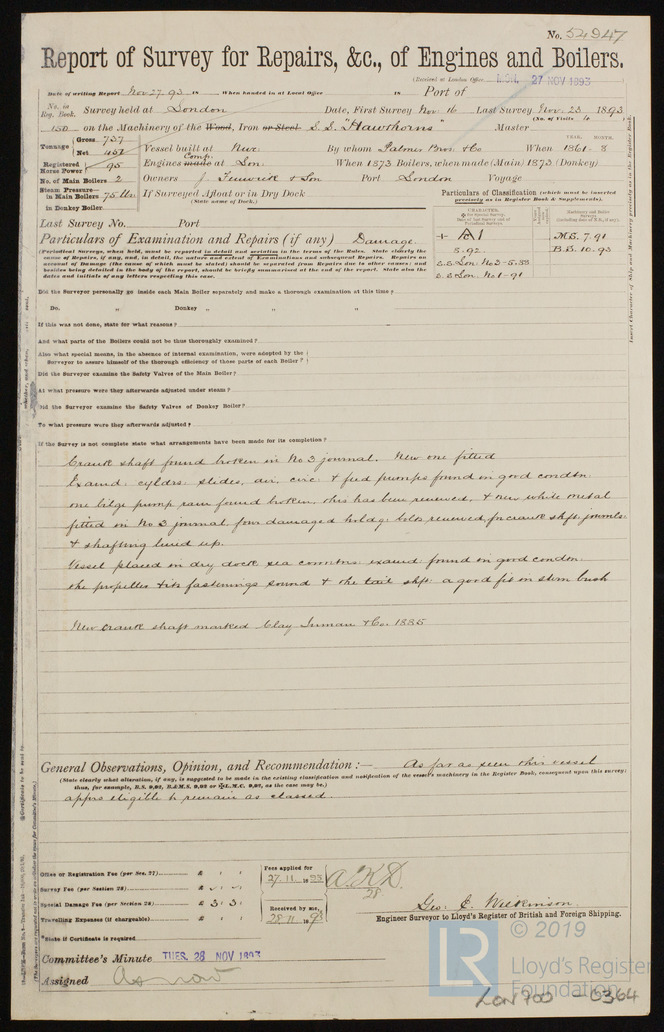 No. 54947
Report of Survey for Repairs, &c., of Engines and Boilers.
(Received at London Office MON. 27 NOV 1893
Date of writing Report Nov 27. 93 18 When handed in at Local Office 18 Port of
No. in Reg. Book. Survey held at London Date, First Survey Nov. 16 Last Survey Nov. 23 1893
(No. of Visits 4 )
150 on the Machinery of the Wood, Iron or Steel S.S. "Hawthorns" Master
Tonnage Gross 737 Net 451
Vessel built at Nwc. By whom Palmer Bros. & Co When YEAR. 1861 - MONTH. 8
Registered Horse Power 95 Engines Comp. made at Lon. When 1873 Boilers, when made (Main) 1873 (Donkey)
No. of Main Boilers 2 Owners J. Fenwick & Son Port London Voyage
Steam Pressure— in Main Boilers 75 lbs. If Surveyed Afloat or in Dry Dock
(State name of Dock.)
in Donkey Boiler
Particulars of Classification (which must be inserted precisely as in Register Book & Supplements).
Last Survey No. Port
CHARACTER.
Machinery and Boiler Surveys
+ A 1 M.S. 7.91
5.92. B.S. 10.93
S.S. Lon: No 3-5.88
S.S. Lon: No 1-91
Particulars of Examination and Repairs (if any) Damage.
(Periodical Surveys, when held, must be reported in detail and seriatim in the terms of the Rules. State clearly the
cause of Repairs, if any, and, in detail, the nature and extent of Examinations and subsequent Repairs. Repairs on
account of Damage (the cause of which must be stated) should be separated from Repairs due to other causes; and
besides being detailed in the body of the report, should be briefly summarised at the end of the report. State also the
dates and initials of any letters respecting this case.
Did the Surveyor personally go inside each Main Boiler separately and make a thorough examination at this time?
Do. „ Donkey „ „ „
If this was not done, state for what reasons?
And what parts of the Boilers could not be thus thoroughly examined?
Also what special means, in the absence of internal examination, were adopted by the
Surveyor to assure himself of the thorough efficiency of those parts of each Boiler?
Did the Surveyor examine the Safety Valves of the Main Boiler?
At what pressure were they afterwards adjusted under steam?
Did the Surveyor examine the Safety Valves of Donkey Boiler?
To what pressure were they afterwards adjusted?
If the Survey is not complete state what arrangements have been made for its completion?
Crank shaft found broken in No 3 journal. New one fitted
Examd: cyldrs: slides, air, circ: & feed pumps found in good condtn:
one bilge pump ram found broken, this has been renewed, & new white metal
fitted on No 3 journal four damaged holdg: bolts renewed, for crank shft: journls:
& shafting lined up.
Vessel placed in dry dock sea connctns: examd: found in good condtn:
the propeller & its fastenings sound & the tail shft: a good fit in stern bush
New crank shaft marked Clay Inman & Co. 1885
General Observations, Opinion, and Recommendation :— As far as seen this vessel
(State clearly what alteration, if any, is suggested to be made in the existing classification and notification of the vessel's machinery in the Register Book, consequent upon this survey;
thus, for example, B.S. 9,92, B.&M.S. 9,92 or L.M.C. 9,92, as the case may be.)
appes eligible to remain as classed.
Office or Registration Fee (per Sec. 27) £ : :
Survey Fee (per Section 28) £ : :
Special Damage Fee (per Section 28) £ 3 : 3 :
Travelling Expenses (if chargeable) £ : :
Fees applied for
27.11.1893
Received by me,
28.11.189
A.K.D.
28
Geo. C. Wilkinson.
Engineer Surveyor to Lloyd's Register of British and Foreign Shipping.
*State if Certificate is required
Committee's Minute TUES. 28 NOV 1893
Assigned As now
LR
© 2019
Lloyd's Register
Foundation
LON 900 - 0364